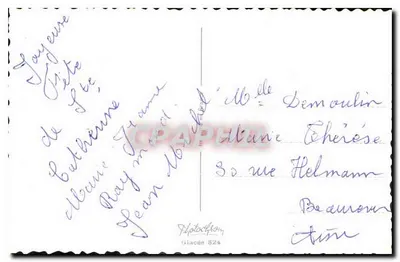 Joyeuse
Fête
de Ste
Catherine
Marie Jeanne
Raymond
Jean Michel
Mlle Demoulin
Marie Thérèse
80 rue Helmann
Beaurevoir
Aisne
CPARAMA
Photochrom
Glacée 824